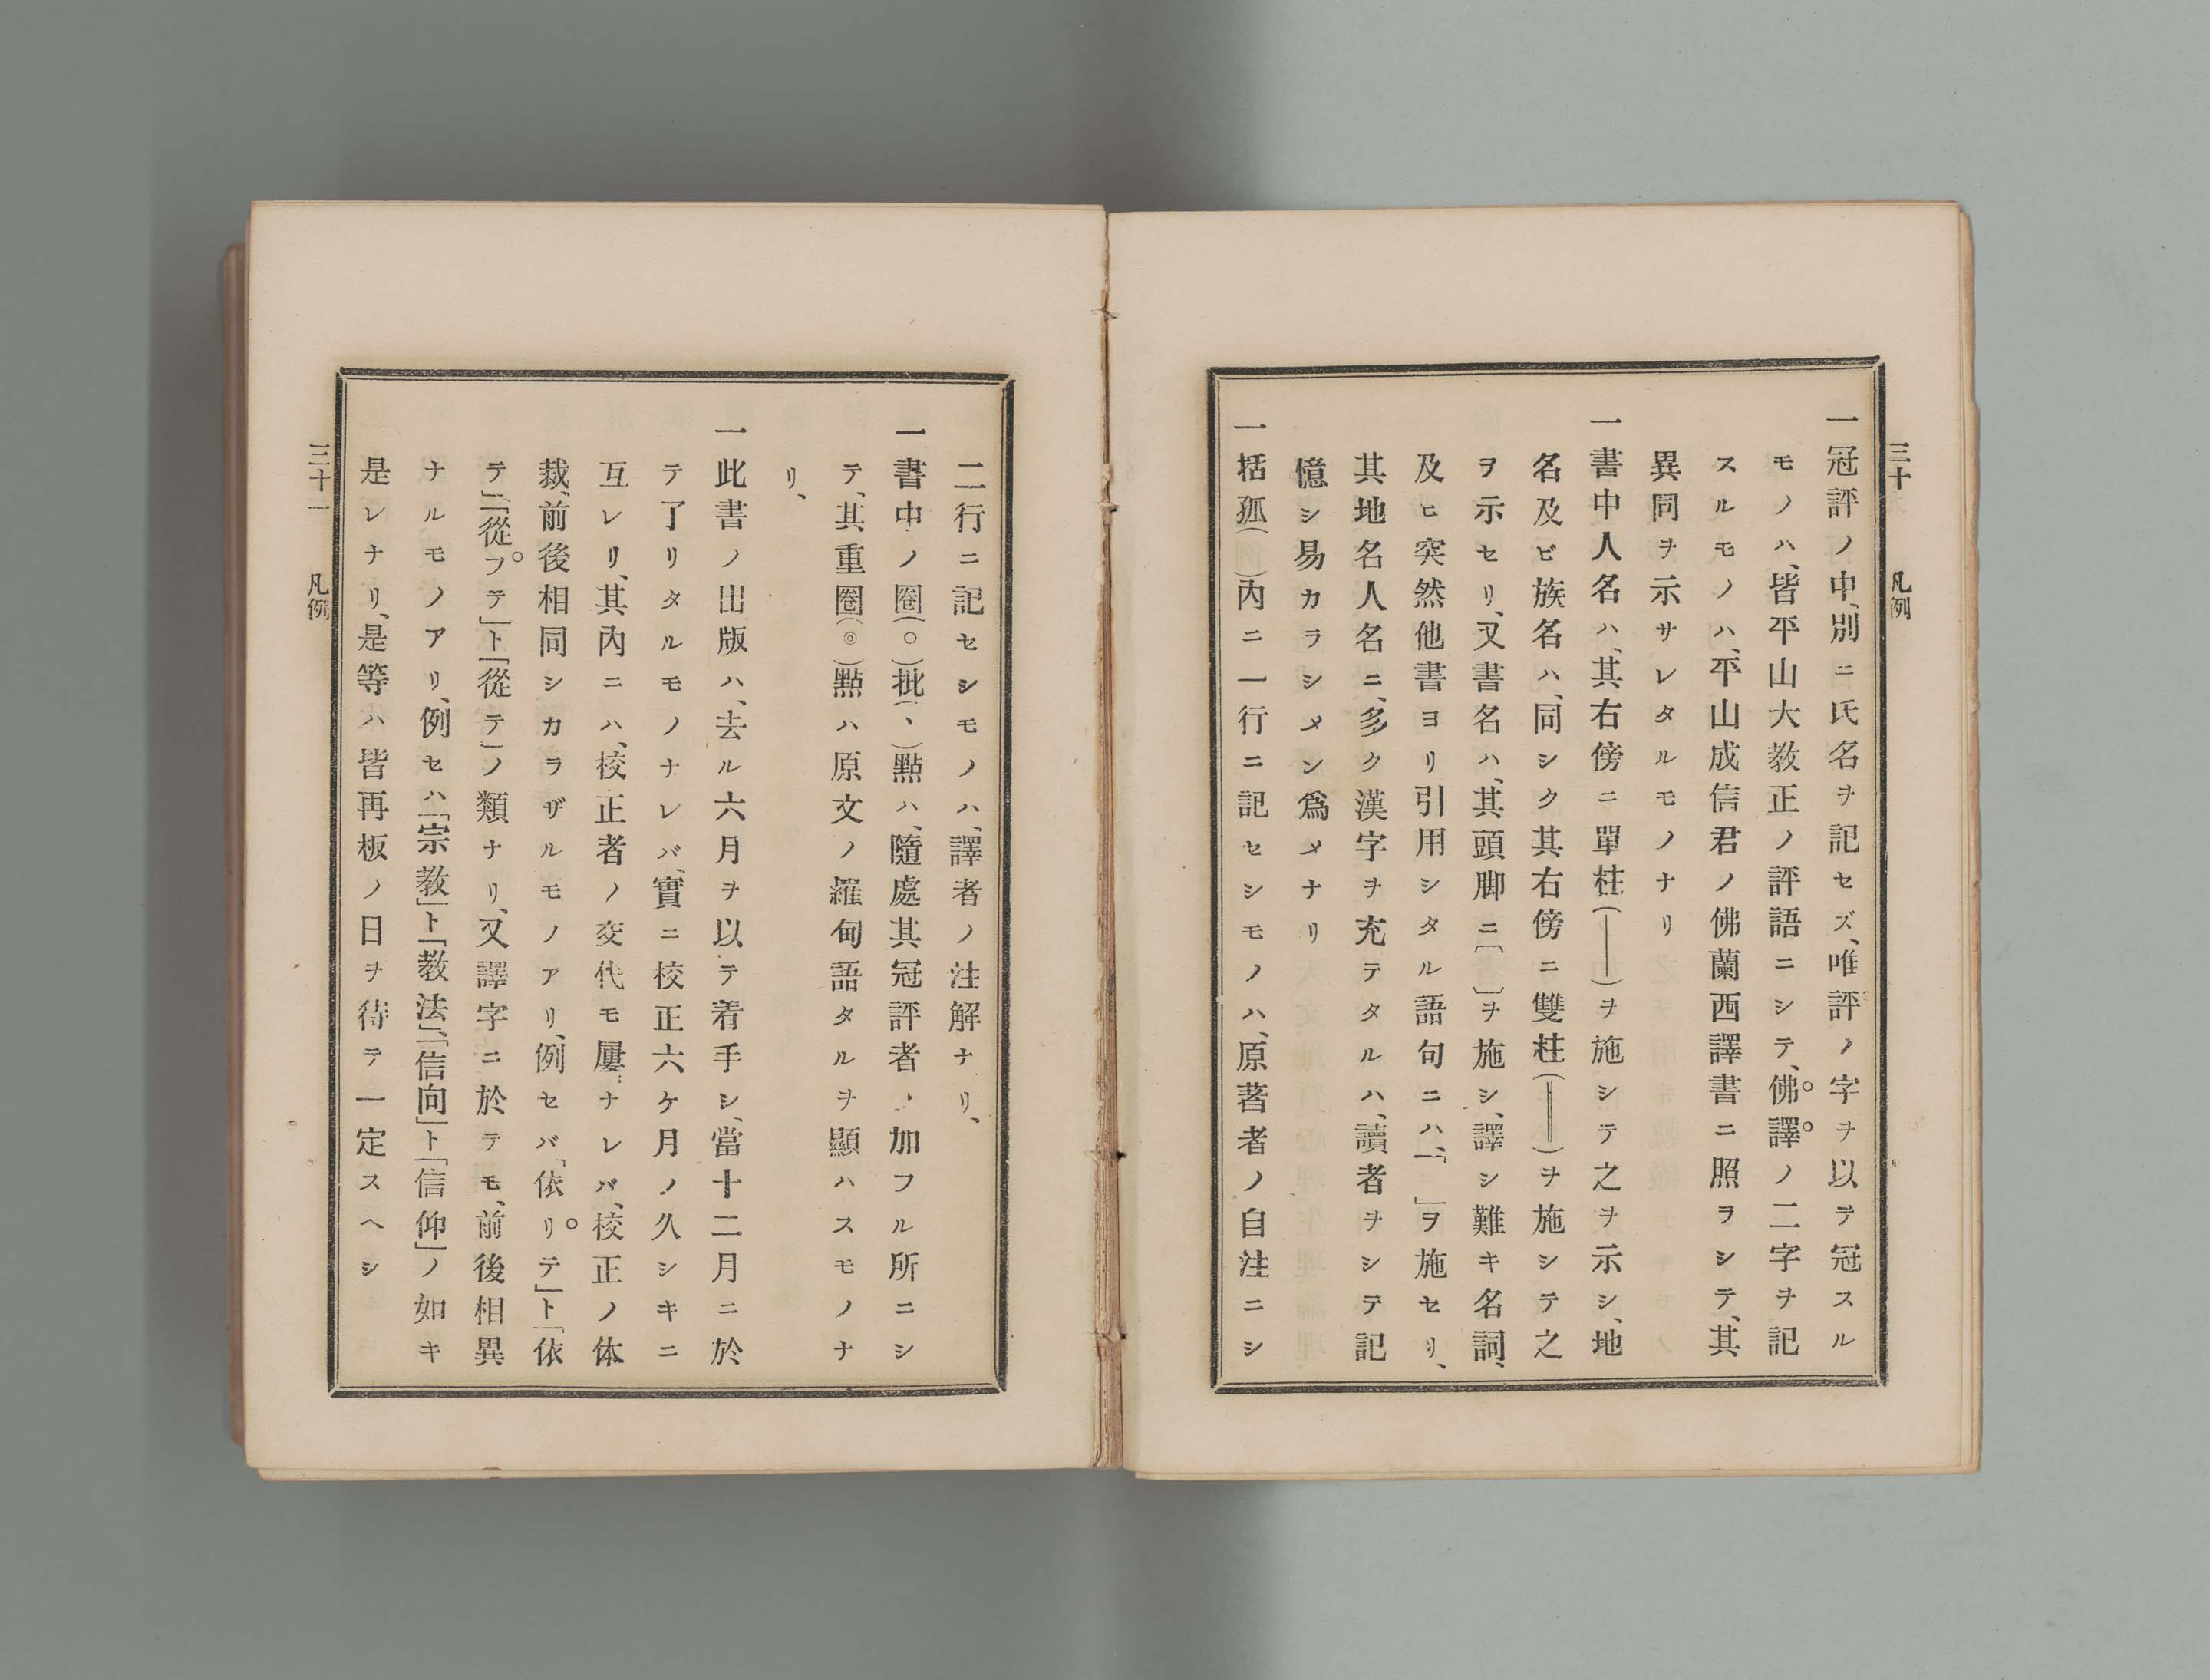 三十　凡例
一冠評ノ中、別ニ氏名ヲ記セズ、唯評ノ字ヲ以テ冠スル
モノハ、皆平山大教正ノ評語ニシテ、佛譯ノ二字ヲ記
スルモノハ、平山成信君ノ佛蘭西譯書ニ照ヲシテ、其
異同ヲ示サレタルモノナリ
一書中人名ハ、其右傍ニ單柱(――)ヲ施シテ之ヲ示シ、地
名及ビ族名ハ、同シク其右傍ニ雙柱(==)ヲ施シテ之
ヲ示セリ、又書名ハ、其頭脚ニ〔　〕ヲ施シ、譯シ難キ名詞、
及ヒ突然他書ヨリ引用シタル語句ニハ、「　」ヲ施セリ、
其地名人名ニ、多ク漢字ヲ充テタルハ、讀者ヲシテ記
憶シ易カラシメン爲メナリ
一括孤(　)內ニ一行ニ記セシモノハ、原著者ノ自注ニシ
二行ニ記セシモノハ、譯者ノ注解ナリ、
一書中ノ圈(○)批(、)點ハ、隨處其冠評者ノ加フル所ニシ
テ、其重圈(◎)點ハ原文ノ羅甸語タルヲ顯ハスモノナ
リ、
一此書ノ出版ハ、去ル六月ヲ以テ着手シ、當十二月ニ於
テ了リタルモノナレバ、實ニ校正六ケ月ノ久シキニ
互レリ、其內ニハ、校正者ノ交代モ屢〻ナレバ、校正ノ体
裁、前後相同シカラザルモノアリ、例セバ「依リテ」ト「依
テ」「從フテ」ト「從テ」ノ類ナリ、又譯字ニ於テモ、前後相異
ナルモノアリ、例セハ「宗教」ト「教法」、「信向」ト「信仰」ノ如キ
是レナリ、是等ハ皆再板ノ日ヲ待テ一定スヘシ
三十一　凡例